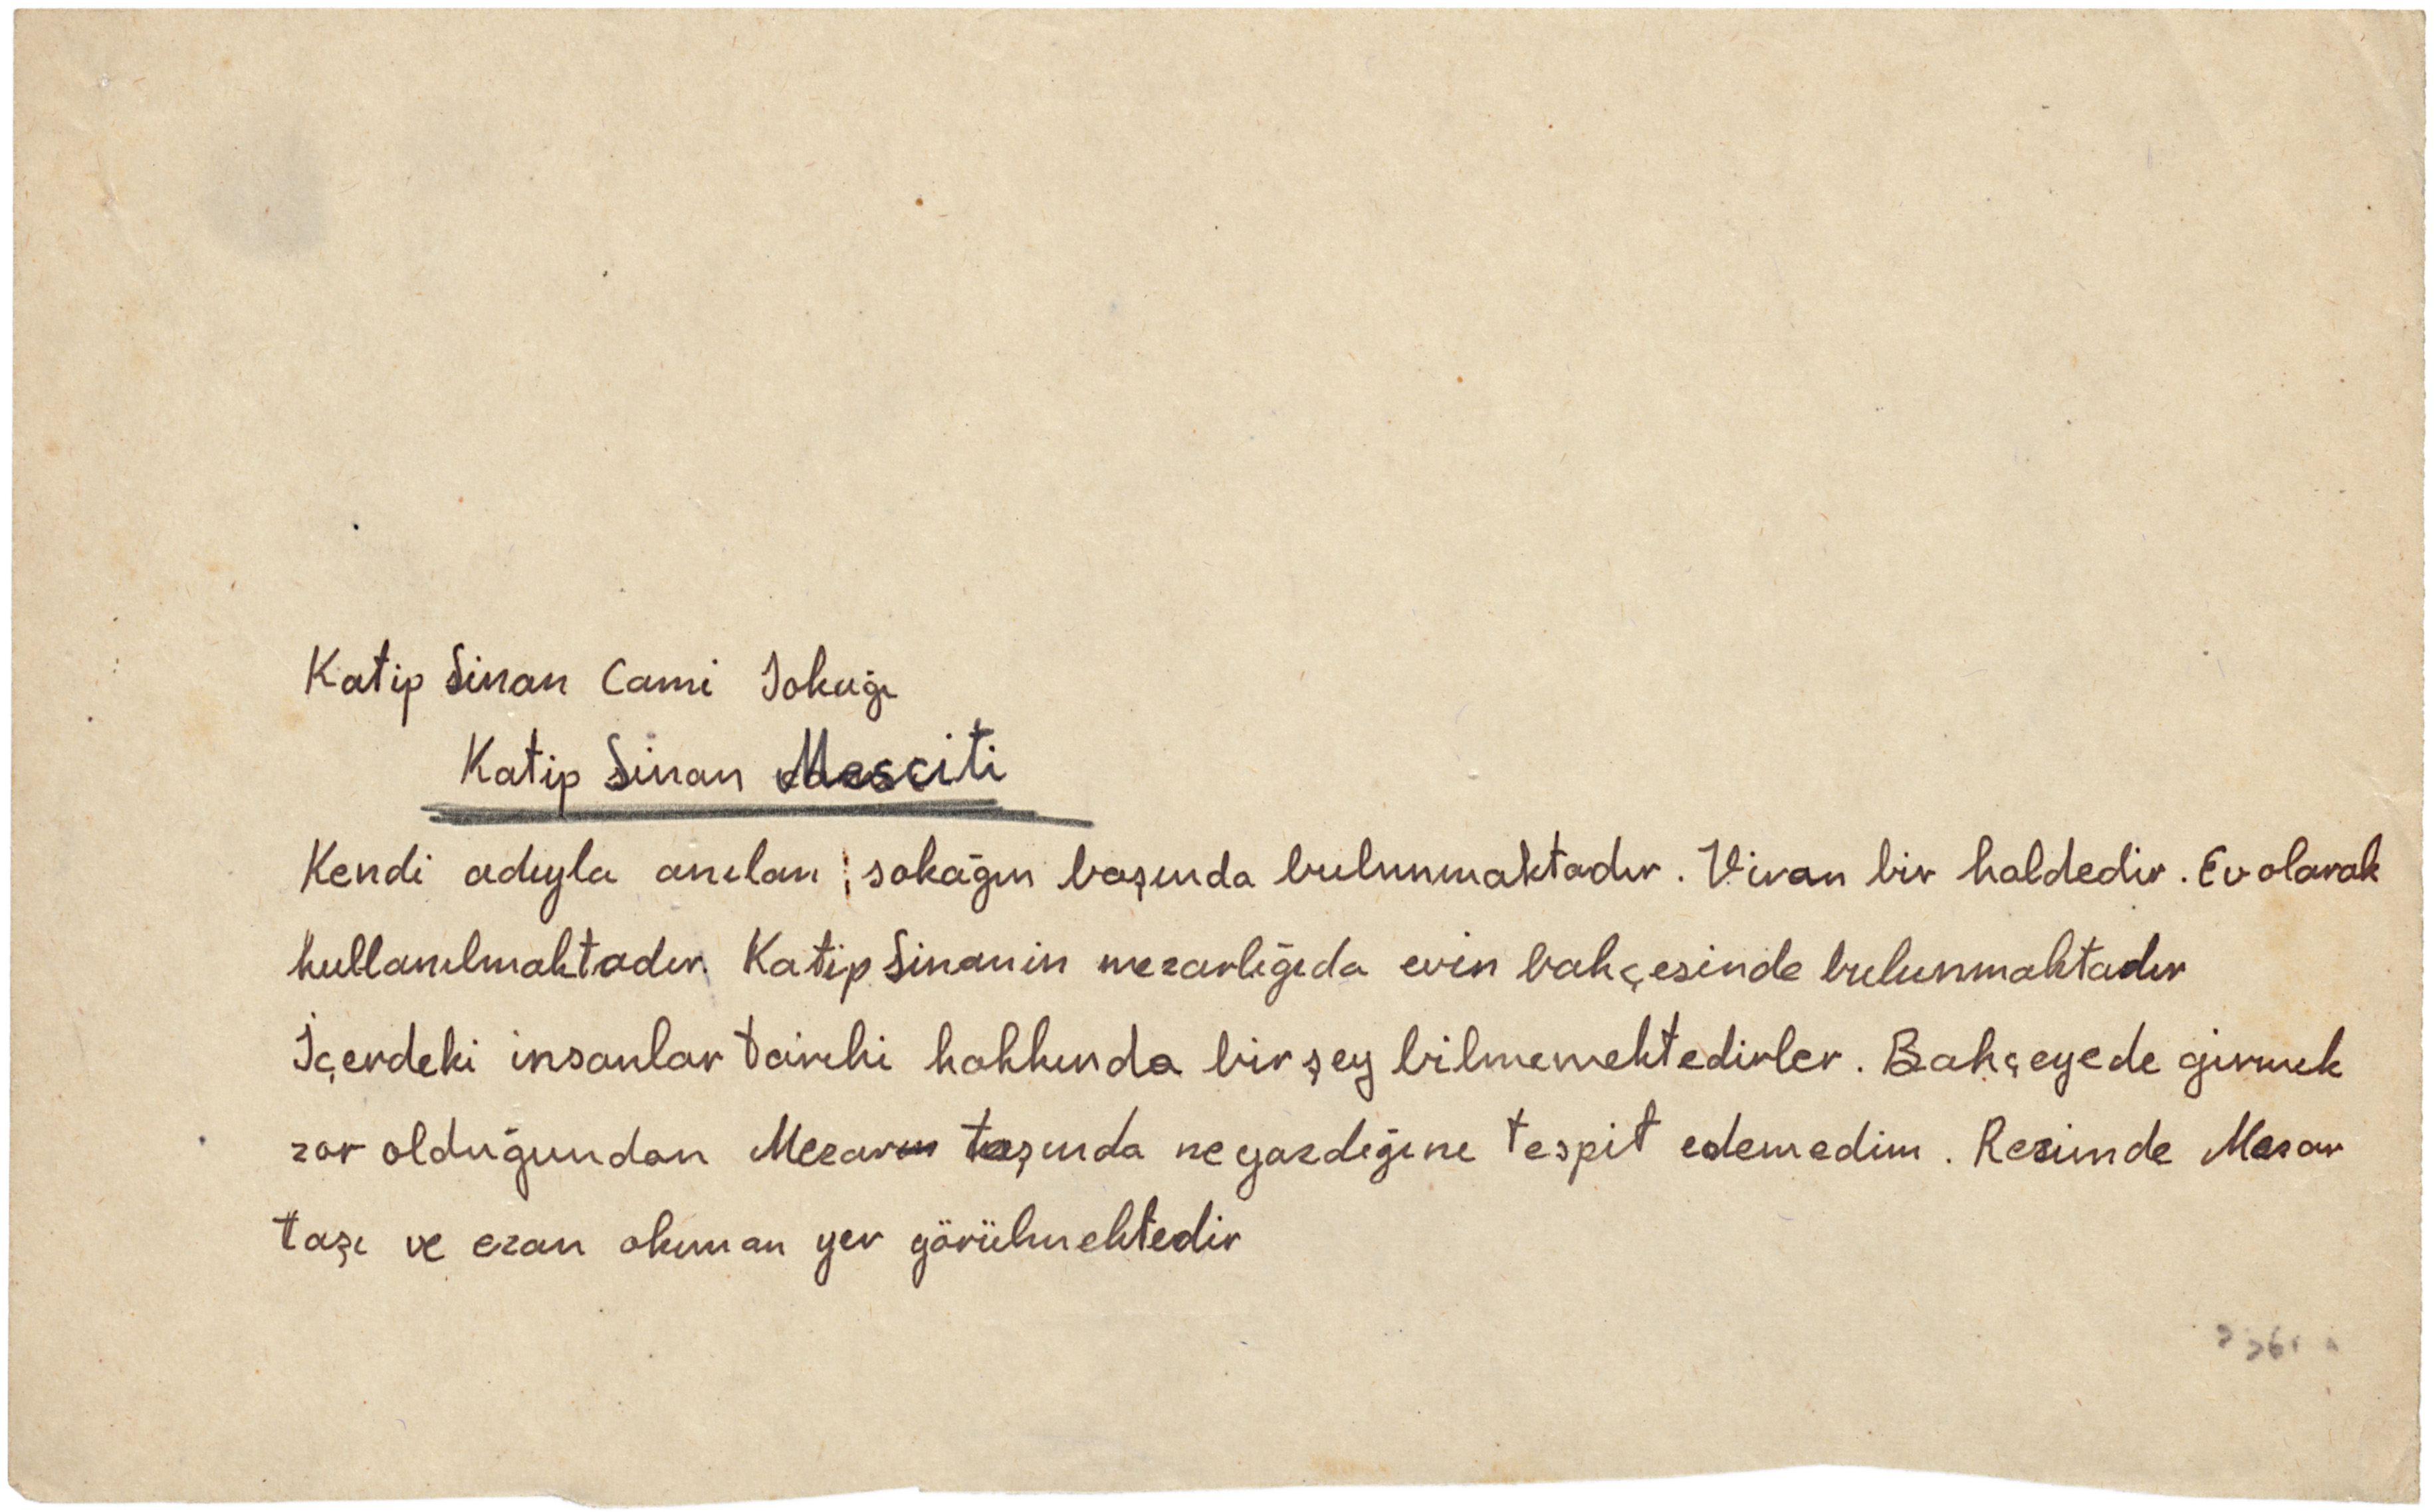 Katip Sinan Cami Sokağı
Katip Sinan Mesciti
Kendi adıyla anılan sokağın başında bulunmaktadır. Viran bir haldedir. Ev olarak
kullanılmaktadır. Katip Sinanin mezarlığıda evin bahçesinde bulunmaktadır
İçerdeki insanlar tarihi hakkında bir şey bilmemektedirler. Bahçeyede girmek
zor olduğundan Mezar taşında ne yazdığını tespit edemedim. Resimde Mezar
taşı ve ezan okunan yer görülmektedir